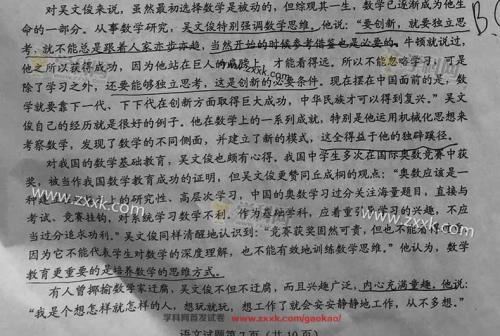 对吴文俊来说，虽然最初选择数学是被动的，但综观其一生，数学已逐渐成为他生
命的一部分。从事数学研究，吴文俊特别强调数学思维。他说：“要创新，就要独立思
考，就不能总是跟着人家亦步亦趋，当然开始的时候参考借鉴也是必要的。牛顿就说过，
他之所以获得成功，因为他站在巨人的肩膀上，才能看得远。所以不能忽略学习，可是
除了学习之外，还要能够独立思考，这是创新的必要条件。现在摆在中国面前的是，数
学就要靠下一代、下下代在创新方面取得巨大成功，中华民族才可以得到复兴。”吴文
俊自己的经历就是很好的例子。他在数学上的一系列成就，特别是他运用机械化思想来
考察数学，发现了数学的不同侧面，并建立了新的模式，这全得益于他的独辟蹊径。
对我国的数学基础教育，吴文俊也颇有心得。我国中学生多次在国际奥数竞赛中获
奖，被当作我国数学教育成功的证明，但吴文俊更赞同丘成桐的观点：“奥数应该是一
种建立在兴趣之上的研究性、高层次学习，中国的奥数学习过分关注海量题目，直接与
考试、竞赛挂钩，对系统学习数学不利。作为基础学科，应着重培养学习的兴趣，不应
当过分追求功利。”吴文俊同样清醒地认识到：“竞赛获奖固然可贵，但也不能
因为它不能代表学生对数学的深度理解，也不能有效地训练数学思维。”他认为，数学
教育更重要的是培养数学的思维方式。
有人曾揶揄数学家迂腐，吴文俊不但不迂腐，而且兴趣广泛，内心充满童趣。他说：
“我是个想怎样就怎样的人，想玩就玩，想工作了就会安安静静地工作，从不多想。”
语文试题第7页（共10页）
学科网首发试卷
www.zxxk.com/gaokao/
www.zxxk.com
www.zxxk.com
B.